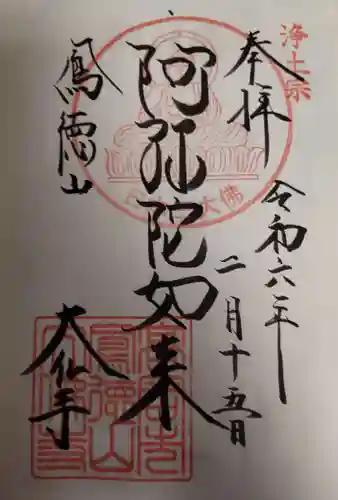 浄土宗
奉拝
令和六年
二月十五日
阿弥陀如来
大佛
鳳徳山
大仏寺